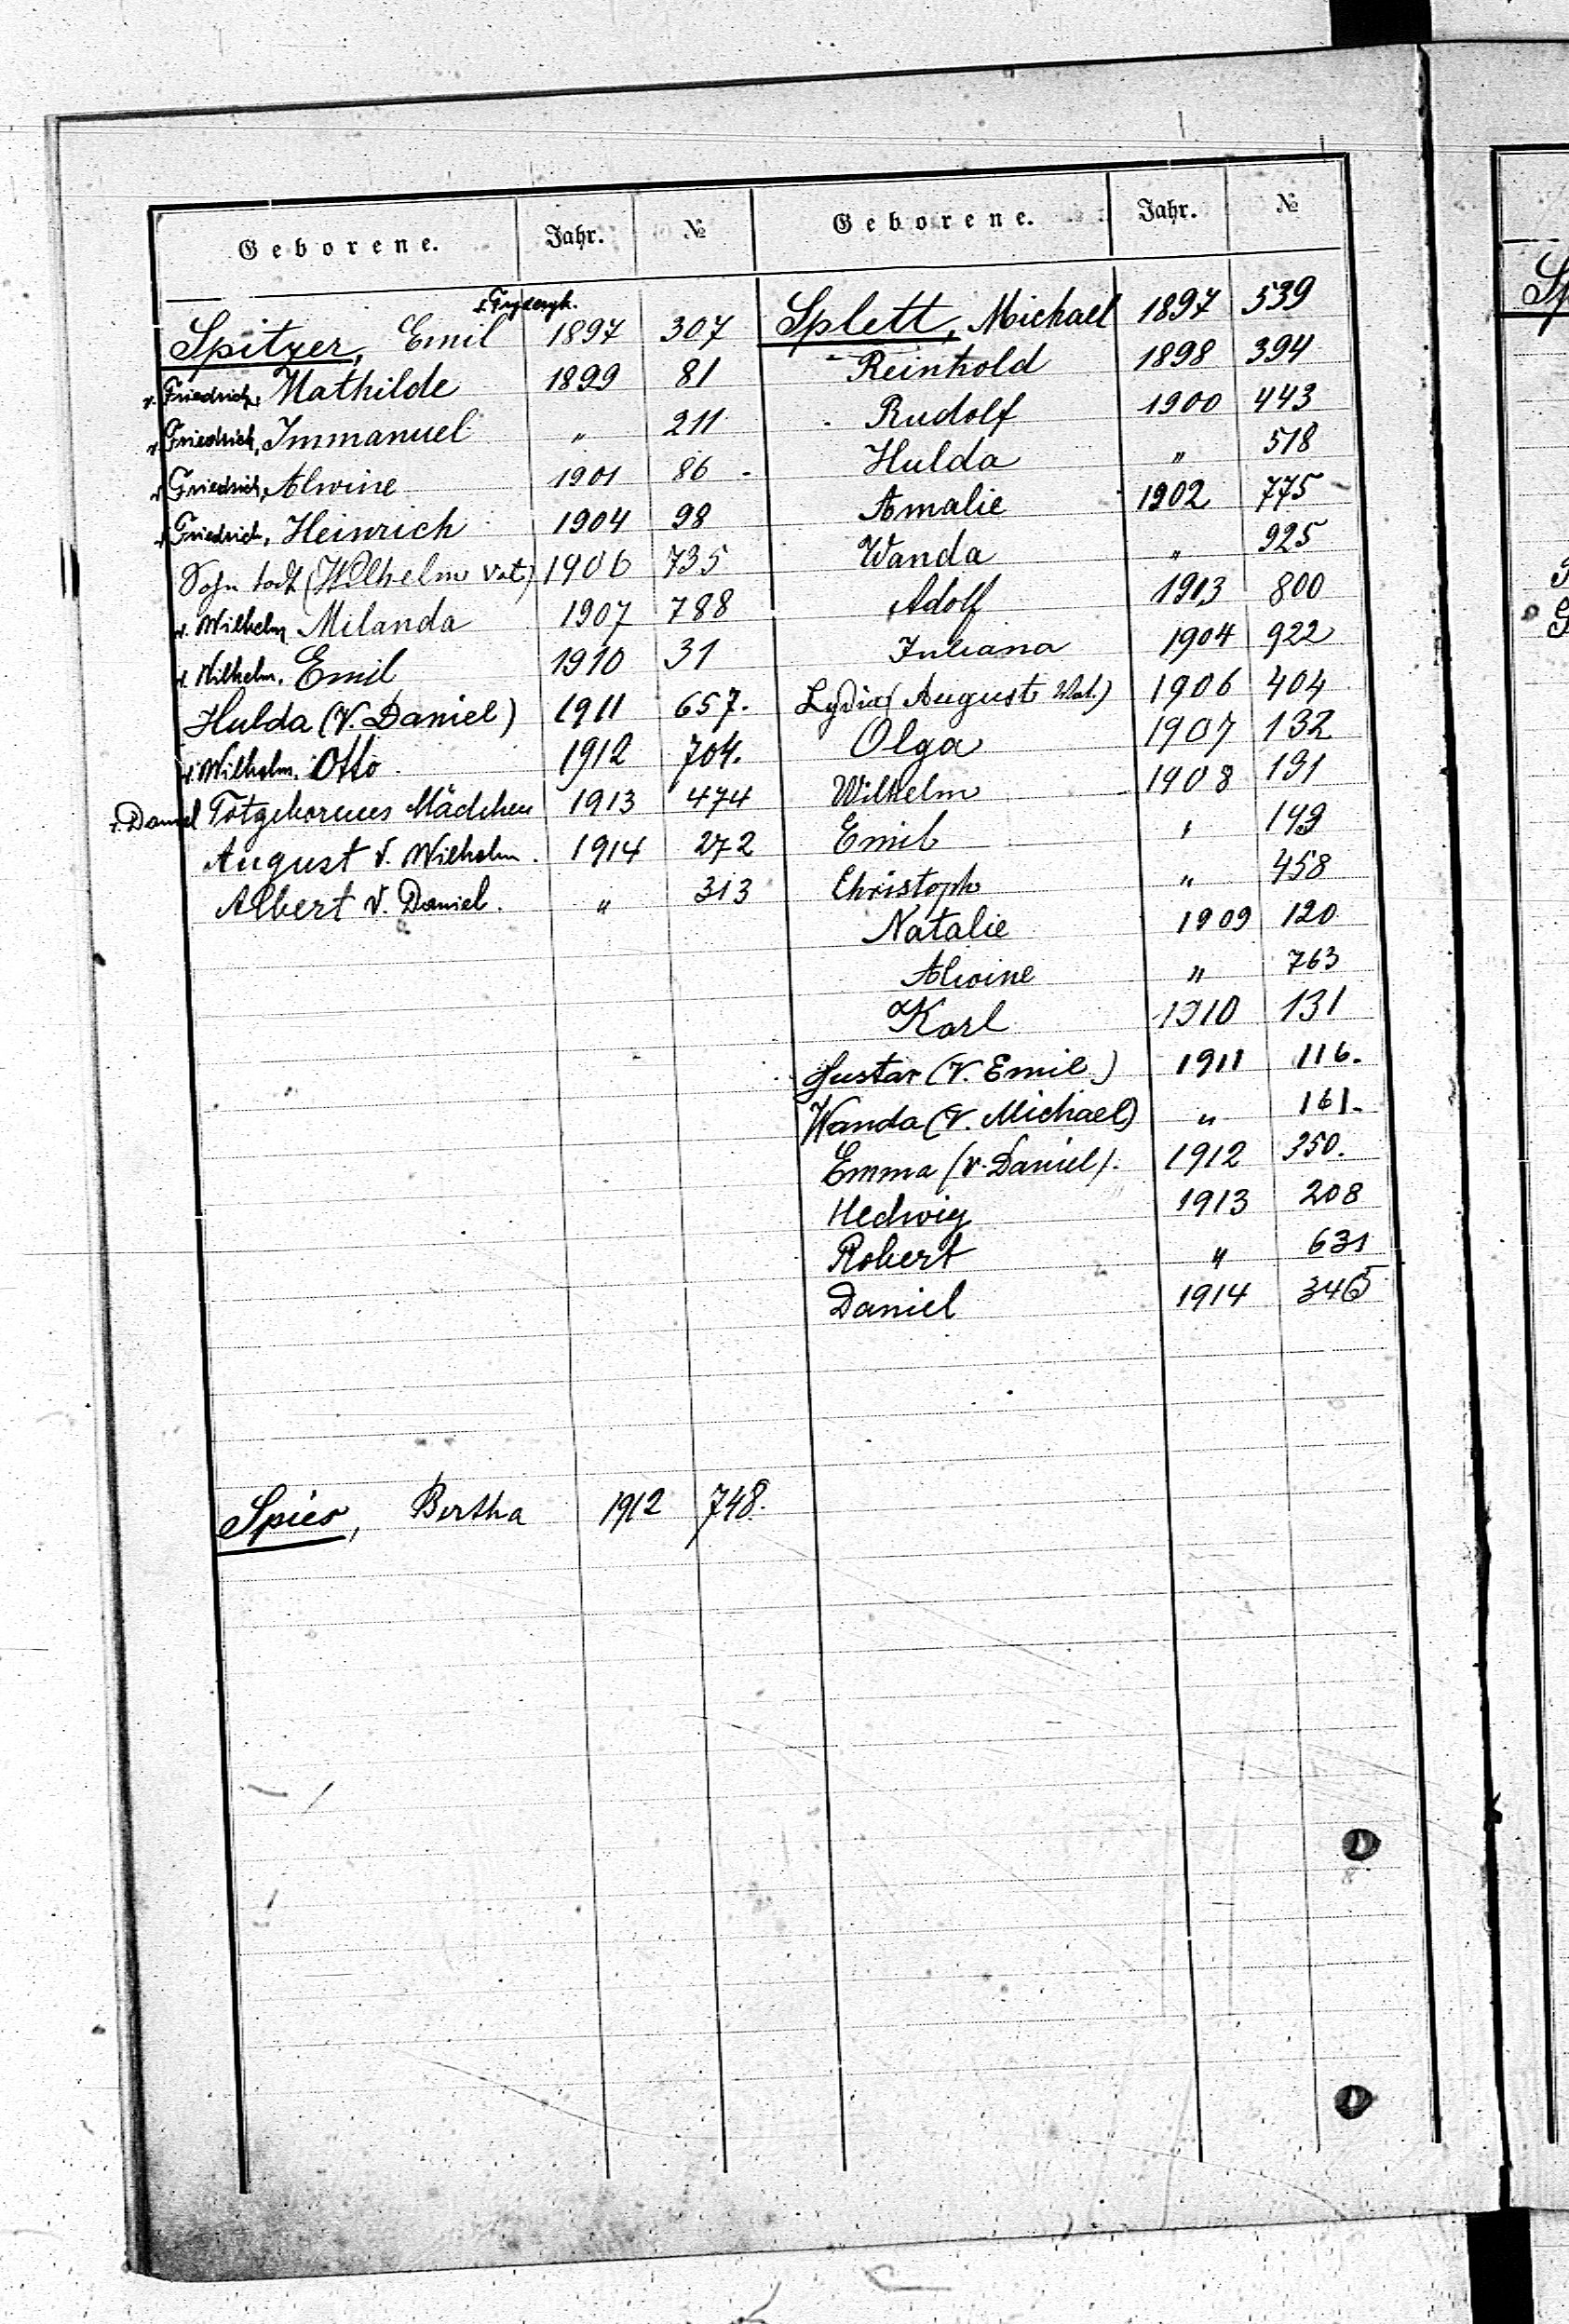 Geborene. Jahr. № Geborene. Jahr. №
Spitzer, Emil 1897 307
v. Friedrich, Mathilde 1899 81
v. Friedrich, Immanuel " 211
v. Friedrich, Alwine 1901 86
v. Friedrich, Heinrich 1904 98
Sohn todt (Wilhelm Vat) 1906 735
v. Wilhelm Milanda 1907 788
v. Wilhelm. Emil 1910 31
Hulda (V. Daniel) 1911 657.
v. Wilhelm. Otto 1912 704.
v. Daniel Totgebornes Mädchen 1913 474
August V. Wilhelm. 1914 272
Albert V. Daniel. " 313
Spies, Bertha 1912 748.
Splett, Michael 1897 539
Reinhold 1898 394
Rudolf 1900 443
Hulda " 518
Amalie 1902 775
Wanda " 925
Adolf 1913 800
Juliana 1904 922
Lydia (August Vat.) 1906 404
Olga 1907 132
Wilhelm 1908 131
Emil " 149
Christoph " 458
Natalie 1909 120
Alwine " 763
Karl 1910 131
Gustav (V. Emil) 1911 116.
Wanda (V. Michael) " 161.
Emma (v. Daniel). 1912 350.
Hedwig 1913 208
Robert " 631
Daniel 1914 346
Sp